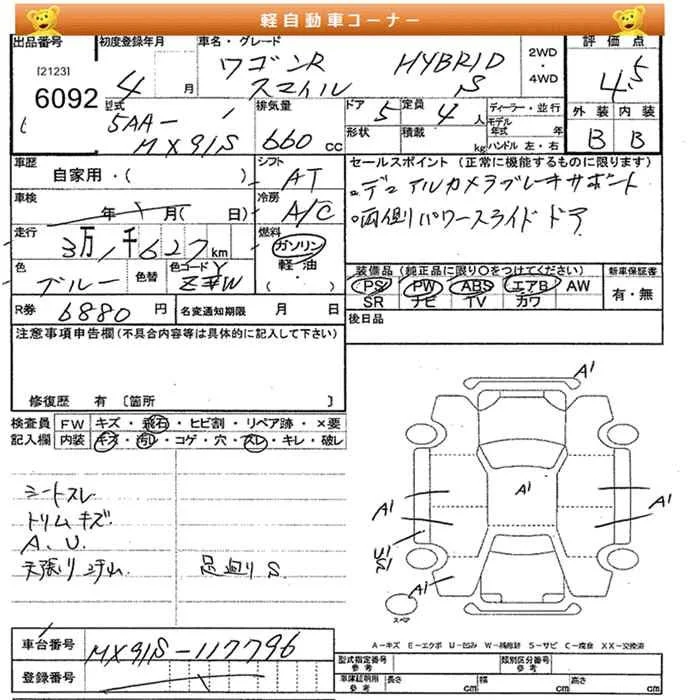 軽自動車コーナー
出品番号 初度登録年月 車名・グレード 評価点
[2123]
6092
4 月
ワゴンR HYBRID
スマイル S
2WD
・
4WD
4.5
型式
5AA-
MX91S
排気量
660 cc
ドア 5 定員 4 人
形状 積載 kg
ディーラー・並行
モデル
年式 年
ハンドル 左・右
外装 内装
B B
車歴
自家用・( )
シフト
AT
セールスポイント (正常に機能するものに限ります)
デュアルカメラブレーキサポート
両側パワースライドドア
車検
年 月( 日)
冷房
A/C
走行
3万1千627km
燃料
ガソリン
軽油
( ・ )
色
ブルー
色替
色コード
装備品 (純正品に限り〇をつけてください)
PS PW ABS エアB AW
SR ナビ TV カワ
新車保証書
有・無
R券 6880 円
名変通知期限 月 日
後日品
注意事項申告欄(不具合内容等は具体的に記入して下さい)
修復歴 有 〔箇所 〕
検査員
記入欄
FW キズ・飛石・ヒビ割・リペア跡・×要
内装 キズ・汚レ・コゲ・穴・スレ・キレ・破レ
シートスレ
トリムキズ
A、U、
天張り
足廻りS
A1
A1
A1
A1
U1
S1
A1
スペア
A-キズ E-エクボ U-凹み W-補修跡 S-サビ C-腐食 XX-交換済
車台番号 MX91S-117796
登録番号
型式指定番号
参考
類別区分番号
参考
車庫証明用
参考
長さ cm 幅 cm 高さ cm